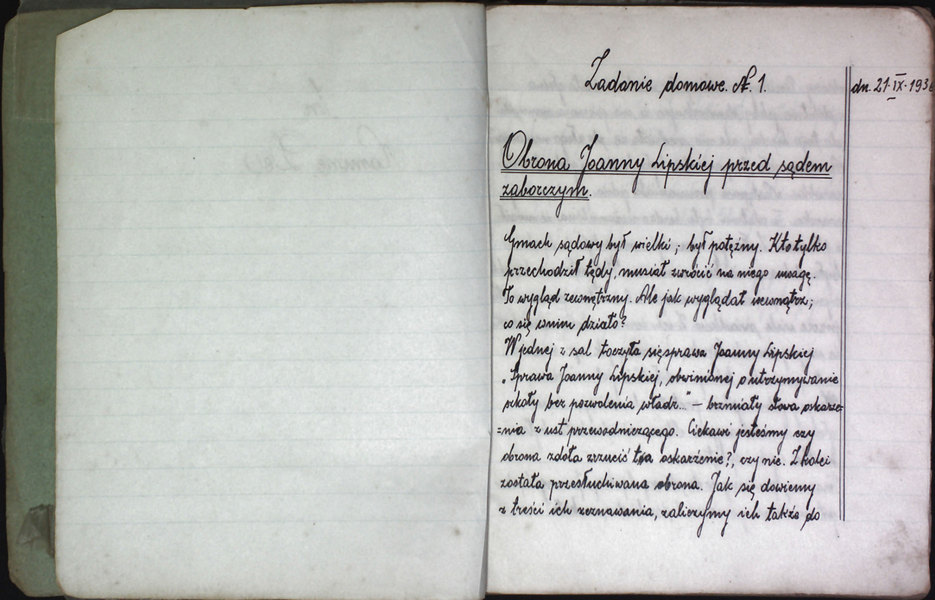 Zadanie domowe. № 1.
dn. 21.IX.193
Obrona Joanny Lipskiej przed sądem
zaborczym.
Gmach sądowy był wielki; był potężny. Kto tylko
przechodził tędy, musiał zwrócić na niego uwagę.
To wygląd zewnętrzny. Ale jak wyglądał wewnątrz;
co się w nim działo?
W jednej z sal toczyła się sprawa Joanny Lipskiej
„Sprawa Joanny Lipskiej, obwinionej o utrzymywanie
szkoły bez pozwolenia władz..." – brzmiały słowa oskarże=
=nia z ust przewodniczącego. Ciekawi jesteśmy czy
obrona zdoła zrzucić to oskarżenie?, czy nie. Z kolei
została przesłuchiwana obrona. Jak się dowiemy
z treści ich zeznawania, zaliczymy ich także do